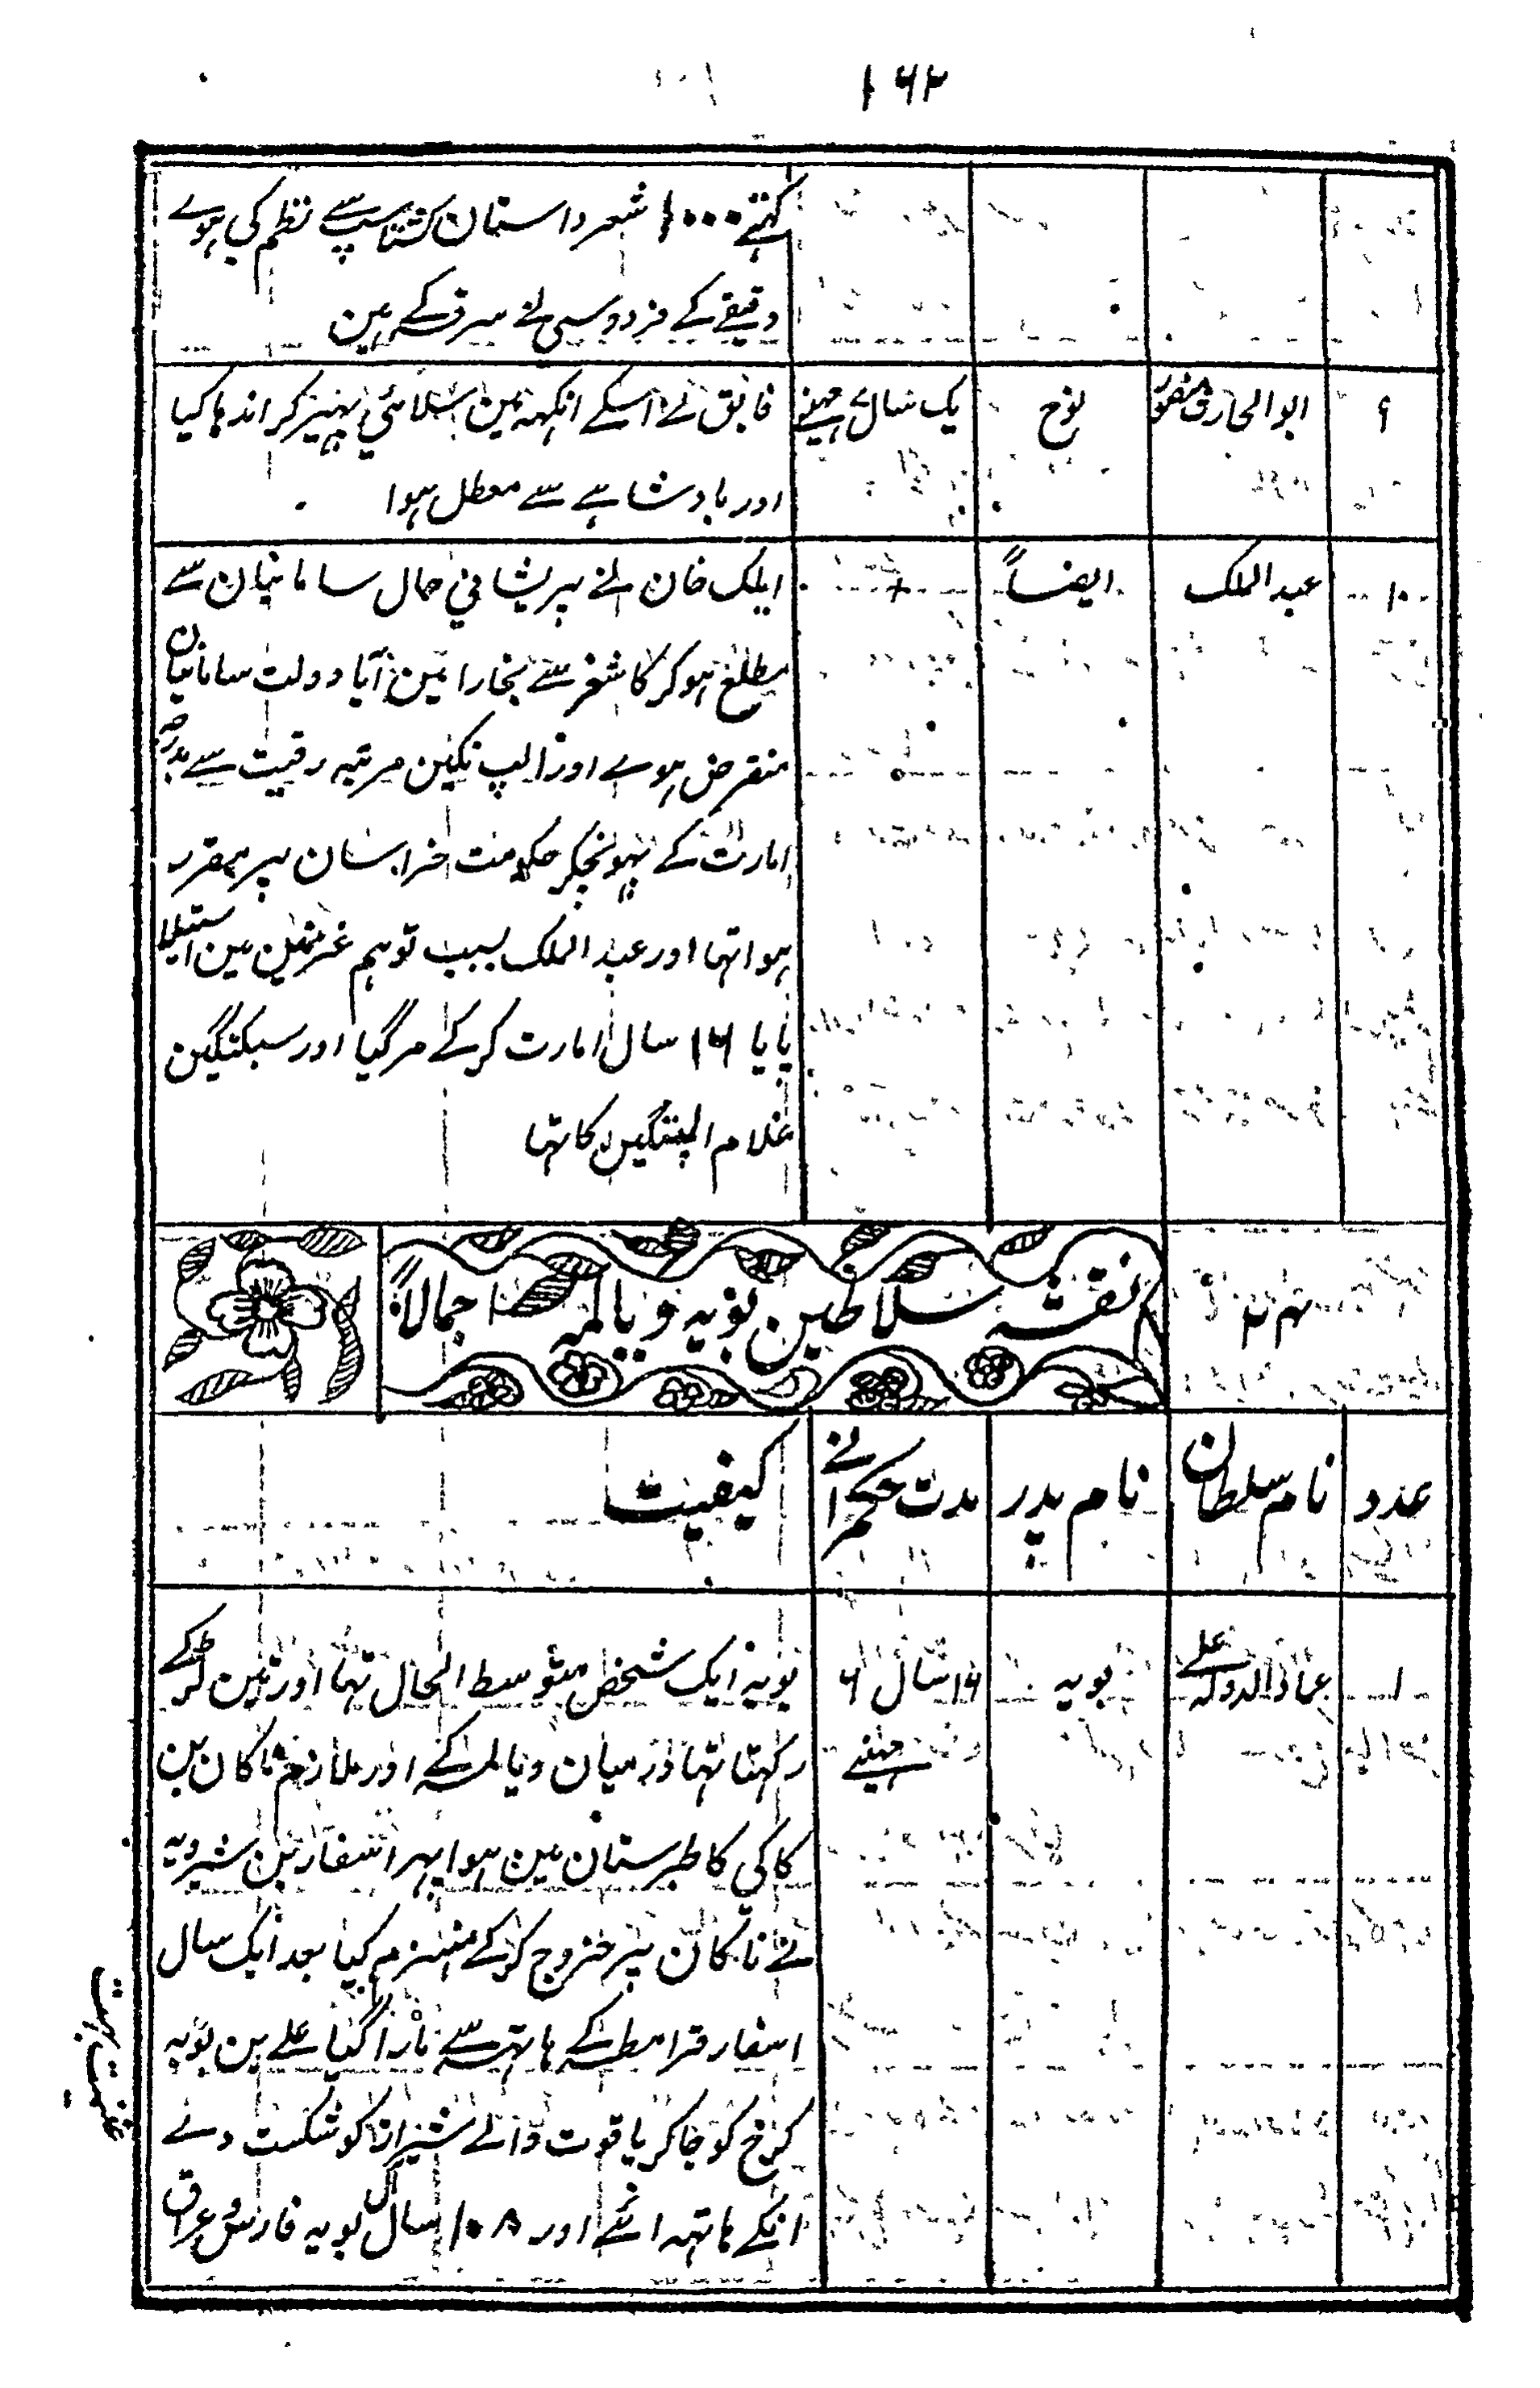 ۱۶۲
کہتے ۱۰۰۰ شعر داستان گشتاسپ سے نظم کی ہوے
دقیقے کے فردوسی نے سرقہ کے ہین
۹ ابو الحارث منصور نوح یک سال ۷ مہینے فایق نے اسکے انکہہ مین سلائی پہیر کر اندہا کیا
اور بادشاہے سے معطل ہوا
۱۰ عبد الملک ایضاً ایلک خان نے پریشانی حال سامانیان سے
مطلع ہو کر کاشغر سے بخارا مین آیا دولت سامانیان
منقرض ہوے اور الپ تکین مرتبہ رقیت سے بدرجہ
امارت کے پہونچکر حکومت خراسان پر مقرر
ہوا تہا اور عبد الملک بسبب توہم غزنین مین استیلا
پایا ۱۶ سال امارت کر کے مر گیا اور سبکتگین
غلام الپتگین کا تہا
نقشہ سلاطین بویہ دیالمہ اجمالاً
عدد نام سلطان نام پدر مدت حکمرانے کیفیت
۱ عماد الدولہ علے بویہ ۱۶ سال ۶ مہینے بویہ ایک شخص متوسط الحال تہا اور تین لڑکے
رکہتا تہا درمیان دیالمہ کے اور ملازم ماکان بن
کاکی کا طبرستان مین ہوا پہر اسفار بن شیرویہ
نے ماکان پر خروج کر کے منہزم کیا بعد ایک سال
اسفار قرامطہ کے ہاتہہ سے مارا گیا علے بن بویہ
کرخ کو جا کر یاقوت والے شیراز کو شکست دے
انکے ہاتہہ ائے اور ۱۰۸ سال آل بویہ فارس و عراق